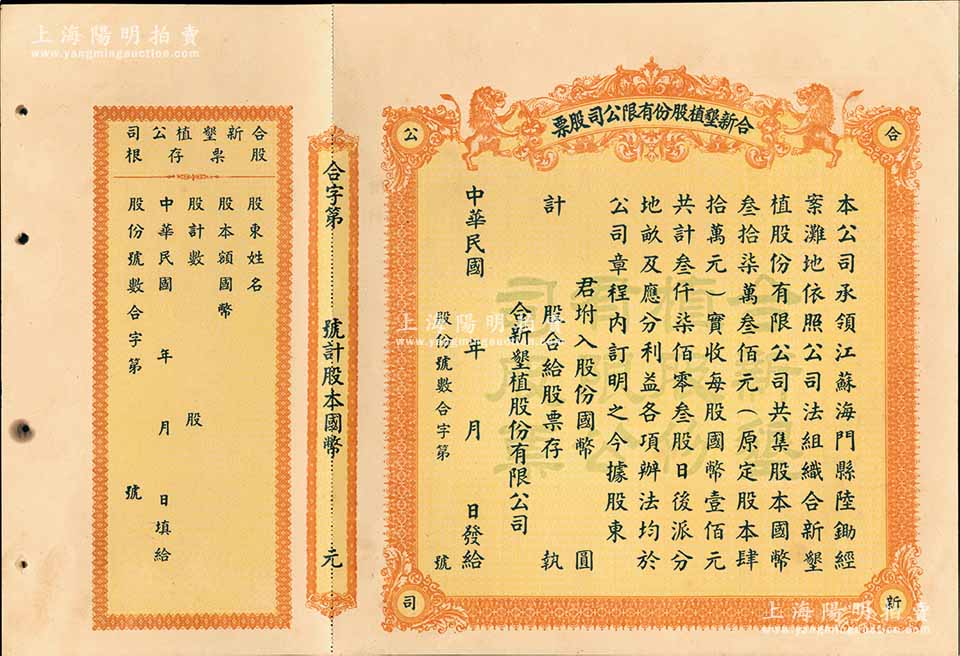 上海陽明拍賣
www.yangmingauction.com
合新墾植股份有限公司股票
合
公
新
司
本公司承領江蘇海門縣陸鋤經
案灘地依照公司法組織合新墾
植股份有限公司共集股本國幣
叁拾柒萬叁佰元(原定股本肆
拾萬元)實收每股國幣壹佰元
共計叁仟柒佰零叁股日後派分
地畝及應分利益各項辦法均於
公司章程內訂明之今據股東
君坿入股份國幣 圓
計 股合給股票存 執
合新墾植股份有限公司
中華民國 年 月 日發給
股份號數合字第 號
合新墾植公司股份股票
合字第 號計股本國幣 元
合新墾植公司
股票存根
股東姓名
股本額國幣
股計數 股
中華民國 年 月 日填給
股份號數合字第 號
上海陽明拍賣
www.yangmingauction.com
上海陽明拍賣
www.yangmingauction.com